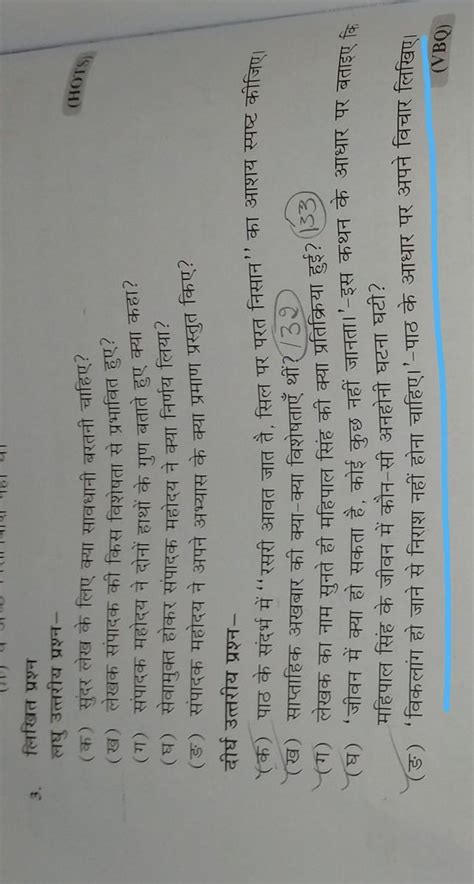 3. लिखित प्रश्न
लघु उत्तरीय प्रश्न–
(HOTS)
(क) सुंदर लेख के लिए क्या सावधानी बरतनी चाहिए?
(ख) लेखक संपादक की किस विशेषता से प्रभावित हुए?
(ग) संपादक महोदय ने दोनों हाथों के गुण बताते हुए क्या कहा?
(घ) सेवामुक्त होकर संपादक महोदय ने क्या निर्णय लिया?
(ङ) संपादक महोदय ने अपने अभ्यास के क्या प्रमाण प्रस्तुत किए?
दीर्घ उत्तरीय प्रश्न–
(क) पाठ के संदर्भ में "रसरी आवत जात तै, सिल पर परत निसान" का आशय स्पष्ट कीजिए।
(ख) साप्ताहिक अखबार की क्या-क्या विशेषताएँ थीं? 132
(ग) लेखक का नाम सुनते ही महिपाल सिंह की क्या प्रतिक्रिया हुई? 133
(घ) 'जीवन में क्या हो सकता है, कोई कुछ नहीं जानता।'–इस कथन के आधार पर बताइए कि
महिपाल सिंह के जीवन में कौन-सी अनहोनी घटना घटी?
(ङ) 'विकलांग हो जाने से निराश नहीं होना चाहिए।'–पाठ के आधार पर अपने विचार लिखिए।
(VBQ)